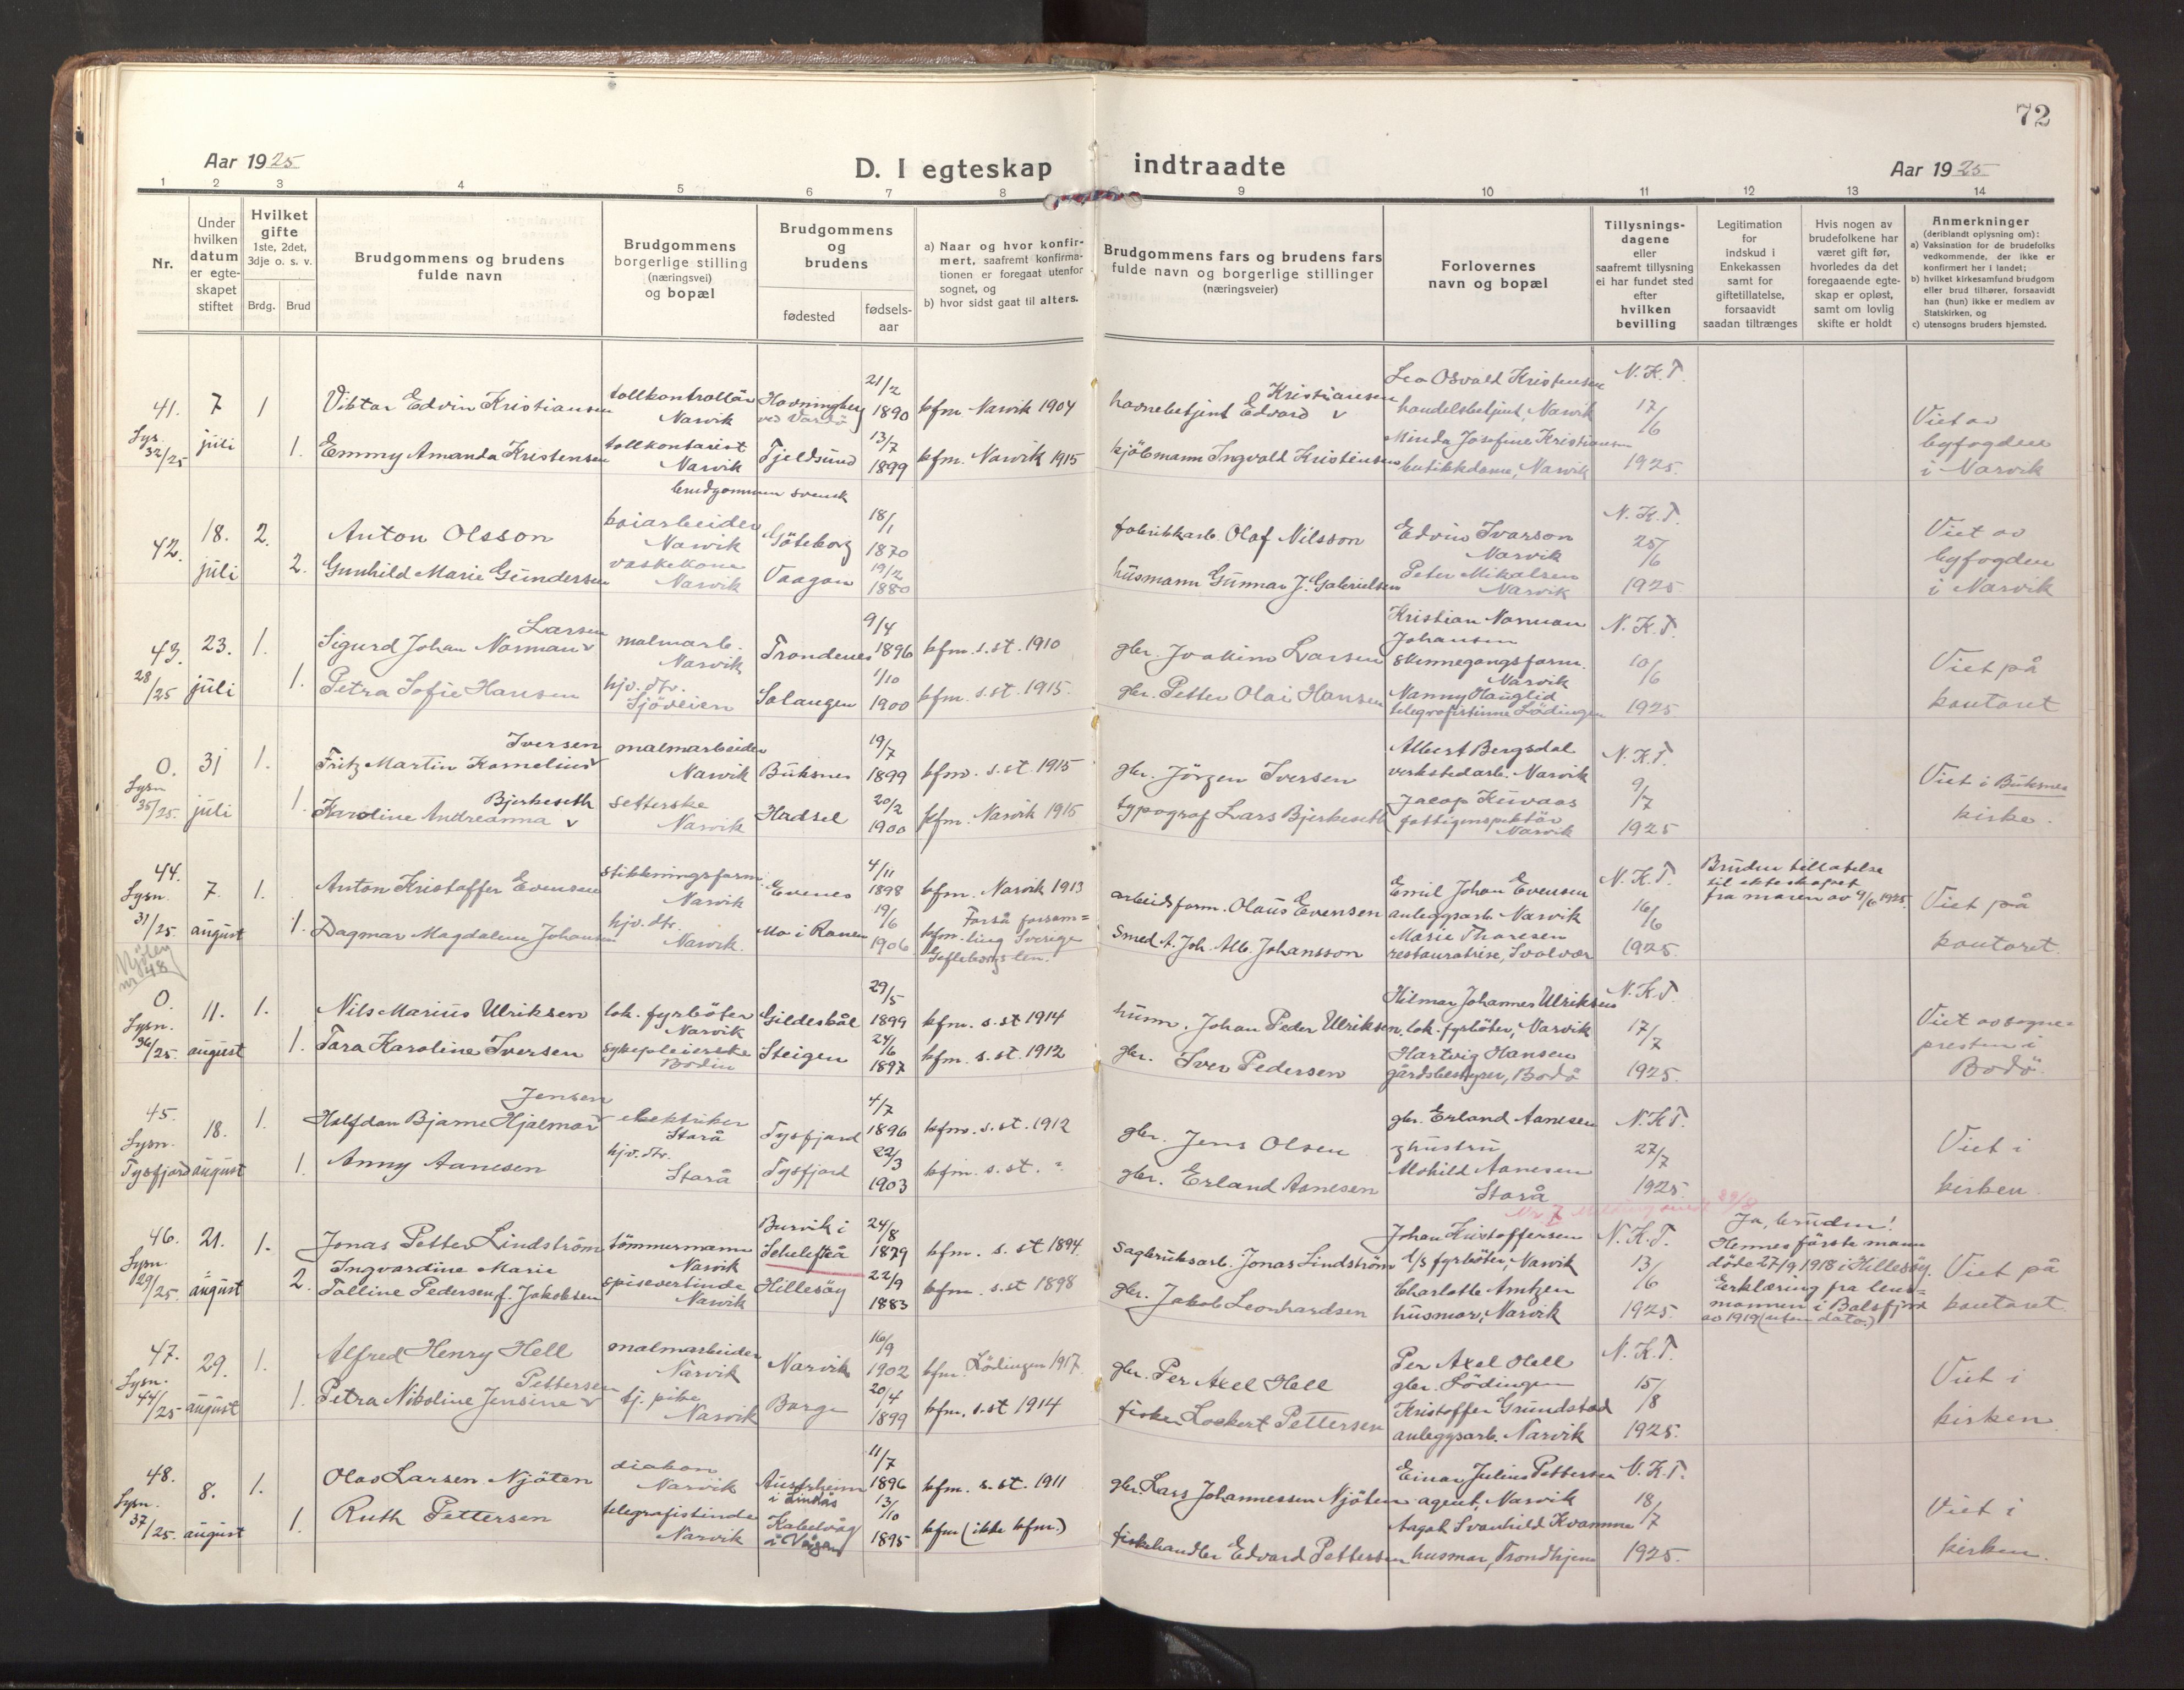 72
Aar 1925
D. I egteskap indtraadte
Aar 1925
1 2 3 4 5 6 7 8 9 10 11 12 13 14
Nr.
Under hvilken datum er egteskapet stiftet
Hvilket gifte
1ste, 2det, 3dje o. s. v.
Brdg. Brud
Brudgommens og brudens fulde navn
Brudgommens borgerlige stilling (næringsvei) og bopæl
Brudgommens og brudens
fødested
fødselsaar
a) Naar og hvor konfirmert, saafremt konfirmationen er foregaat utenfor sognet, og
b) hvor sidst gaat til alters.
Brudgommens fars og brudens fars fulde navn og borgerlige stillinger (næringsveier)
Forlovernes navn og bopæl
Tillysningsdagene eller saafremt tillysning ei har fundet sted efter hvilken bevilling
Legitimation for indskud i Enkekassen samt for giftetillatelse, forsaavidt saadan tiltrænges
Hvis nogen av brudefolkene har været gift før, hvorledes da det foregaaende egteskap er opløst, samt om lovlig skifte er holdt
Anmerkninger
(deriblandt oplysning om):
a) Vaksination for de brudefolks vedkommende, der ikke er konfirmert her i landet;
b) hvilket kirkesamfund brudgom eller brud tilhører, forsaavidt han (hun) ikke er medlem av Statskirken, og
c) utensogns bruders hjemsted.
41. 7 juli 1 Viktor Edvin Kristiansen tollkontrollör Narvik Havningberg ved Vardö 21/2 1890 kfm. Narvik 1904 havnebetjent Edvard Kristiansen Leo Osvald Kristensen handelsbetjent, Narvik N.K.T. 17/6 1925 Viet av byfogden i Narvik
Lysn. 32/25 1. Emmy Amanda Kristensen tollkontorist Narvik Fjeldsund 13/7 1899 kfm. Narvik 1915 kjöbmann Ingvald Kristensen Minda Josefine Kristiansen butikkdame, Narvik
brudgommen svensk
42. 18. juli 2. Anton Olsson kaiarbeider Narvik Göteborg 18/1 1870 fabrikkarb. Olof Nilsson Edvin Ivarson Narvik N.K.T. 25/6 1925 Viet av byfogden i Narvik
2. Gunhild Marie Gundersen vaskekone Narvik Vaagan 19/2 1880 husmann Gunnar J. Gabrielsen Peter Mikalsen Narvik
43. 23. juli 1. Sigurd Johan Norman Larsen malmarb. Narvik Trondenes 9/4 1896 kfm. s. st. 1910 gbr. Joakim Larsen Kristian Norman Johansen skinnegangsform. Narvik N.K.T. 10/6 1925 Viet på kontoret
28/25 1. Petra Sofie Hansen hjv. dtr. Sjöveien Salangen 1/10 1900 kfm. s. st. 1915. gbr. Petter Olai Hansen Nanny Hauglid telegrafistinne Lödingen
0. 31 juli 1. Fritz Martin Kornelius Iversen malmarbeider Narvik Buksnes 19/7 1899 kfm. s. st. 1915 gbr. Jörgen Iversen Albert Bergsdal verkstedarb. Narvik N.K.T. 9/7 1925 Viet i Buksnes kirke.
Lysn 35/25. 1. Karoline Andreanna Bjerkeseth setterske Narvik Hadsel 20/2 1900 kfm. Narvik 1915 typograf Lars Bjerkeseth fattiginspektör Narvik
44. 7. august 1. Anton Kristoffer Evensen stikkningsform. Narvik Evenes 4/11 1898 kfm. Narvik 1913 arbeidsform. Olaus Evensen Emil Johan Evensen anleggsarb. Narvik N.K.T. 16/6 1925 Bruden tillatelse til ekteskapet fra moren av 9/6 1925. Viet på kontoret.
Lysn. 31/25 1. Dagmar Magdalene Johansen hjv. dtr. Narvik. Mo i Ranen 19/6 1906 kfm. Forså forsamling Sverige Gefleborgs len. smed A. Joh. Alb. Johansson Marie Thoresen restauratrise, Svolvær
Njöten nr 48
0. 11. august 1. Nils Marius Ulriksen lok. fyrböter Narvik Gildeskål 29/5 1899 kfm. s. st 1914 husm. Johan Peder Ulriksen Hilmar Johannes Ulriksen lok. fyrböter, Narvik N.K.T. 17/7 1925. Viet av sognepresten i Bodö.
Lysn. 36/25. 1. Tara Karoline Iversen sykepleierske Bodin Steigen 24/6 1897 kfm. s. st. 1912 gbr. Iver Pedersen Hartvig Hansen gårdsbestyrer, Bodö
45. 18. august 1. Halfdan Bjarne Hjalmar Jensen elektriker Storå Tysfjord 4/7 1896 kfm. s. st. 1912 gbr. Jens Olsen gbr. Erland Aanesen N.K.T. 27/7 1925. Viet i kirken.
Lysn. Tysfjord 1. Anny Aanesen hjv. dtr. Storå Tysfjord 22/3 1903 kfm. s. st. gbr. Erland Aanesen hustru Aanesen Storå
46. 21. august 1. Jonas Petter Lindström tömmermann Narvik Burvik i Skellefteå 24/8 1879 kfm. s. st 1894. sagbruksarb. Jonas Lindström Johan Kristoffersen d/s fyrböter, Narvik N.K.T. 13/6 1925. Ja, bruden! Hennes förste mann döde 27/9 1918 i Hillesöy. Erklæring fra lensmannen i Balsfjord av 1919 (uten dato.) Viet på kontoret
Lysn. 29/25. 2. Ingvardine Marie Talline Pedersen f. Jakobsen spisevertinde Narvik Hillesöy 22/9 1883 kfm. s. st 1898 gbr. Jakob Leonhardsen Charlotte Arntzen husmor, Narvik
47. 29. august 1. Alfred Henry Hell malmarbeider Narvik Narvik 16/9 1902 kfm. Lödingen 1917. gbr. Per Axel Hell Per Axel Hell gbr. Lödingen N.K.T. 15/8 1925. Viet i kirken
Lysn. 44/25 1. Petra Nikoline Jensine Pettersen tj. pike Narvik Borge 20/4 1899 kfm. s. st 1914 fisker Lockert Pettersen Kristoffer Grundstad anleggsarb. Narvik
48. 8. august 1. Olav Larsen Njöten diakon Narvik Austrheim i Lindås 11/7 1896 kfm. s. st. 1911 gbr. Lars Johannessen Njöten Einar Julius Pettersen agent, Narvik N.K.T. 18/7 1925. Viet i kirken.
Lysn. 37/25. 1. Ruth Pettersen telegrafistinde Narvik Kabelvåg i Vågan 13/10 1895 kfm (ikke kfm.) fiskehandler Edvard Pettersen Aagot Svanhild Kvamme husmor, Trondhjem